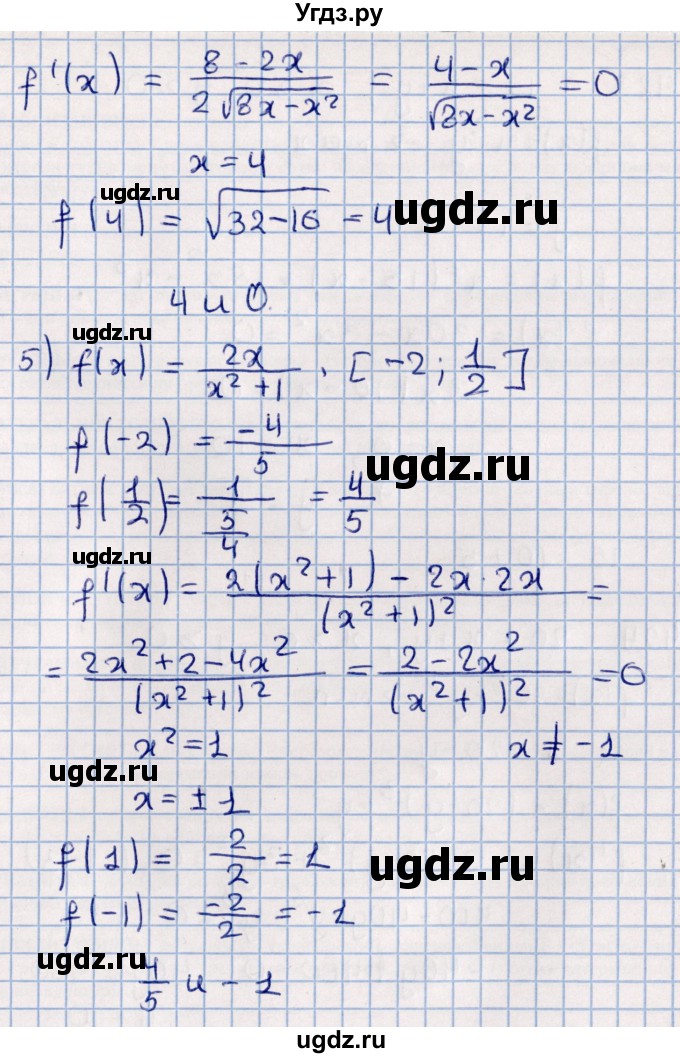 Угдз.ру
f'(x) = (8 - 2x)/(2√(8x-x²)) = (4-x)/√(8x-x²) = 0
x = 4
ugdz.ru
f(4) = √(32-16) = 4
ugdz.ru
4 и 0.
ugdz.ru
5) f(x) = 2x/(x²+1), [-2; 1/2]
f(-2) = -4/5
ugdz.ru
f(1/2) = 1/(5/4) = 4/5
ugdz.ru
f'(x) = (2(x²+1) - 2x·2x)/(x²+1)² =
= (2x²+2-4x²)/(x²+1)² = (2-2x²)/(x²+1)² = 0
x² = 1 x ≠ -1
ugdz.ru
x = ±1
f(1) = 2/2 = 1
ugdz.ru
f(-1) = -2/2 = -1
ugdz.ru
4/5 и -1
ugdz.ru